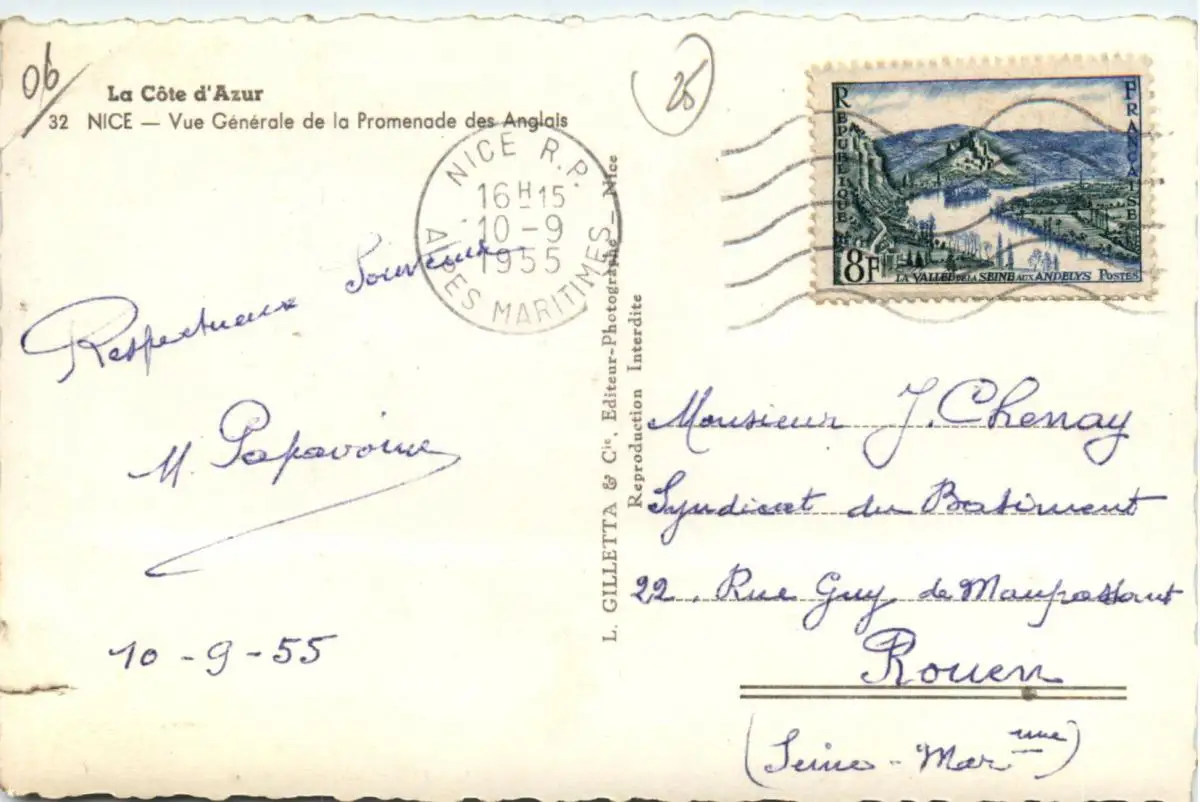 06
La Côte d'Azur
32 NICE — Vue Générale de la Promenade des Anglais
NICE R.P.
16H15
10-9
1955
ALPES MARITIMES
Respectueux Souvenir
M. Papavoine
10-9-55
L. GILLETTA & Cie, Editeur-Photographe - Nice
Reproduction Interdite
RÉPUBLIQUE FRANÇAISE
8F
LA VALLÉE DE LA SEINE AUX ANDELYS POSTES
Monsieur J. Chenay
Syndicat du Batiment
22, Rue Guy de Maupassant
Rouen
(Seine-Marme)